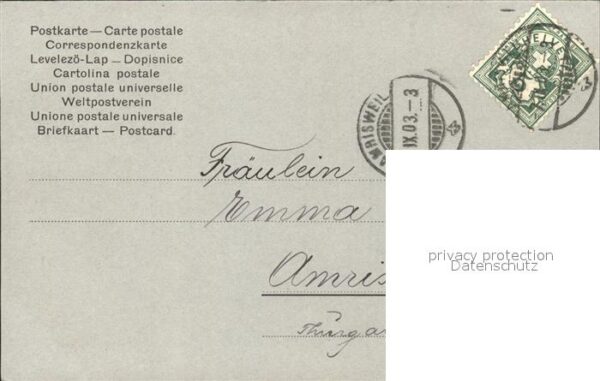 Postkarte — Carte postale
Correspondenzkarte
Levelezö-Lap — Dopisnice
Cartolina postale
Union postale universelle
Weltpostverein
Unione postale universale
Briefkaart — Postcard.
AMRISWEIL
IX.03. – 3
HELVE
Fräulein
Emma
Amris
Thurga
privacy protection
Datenschutz